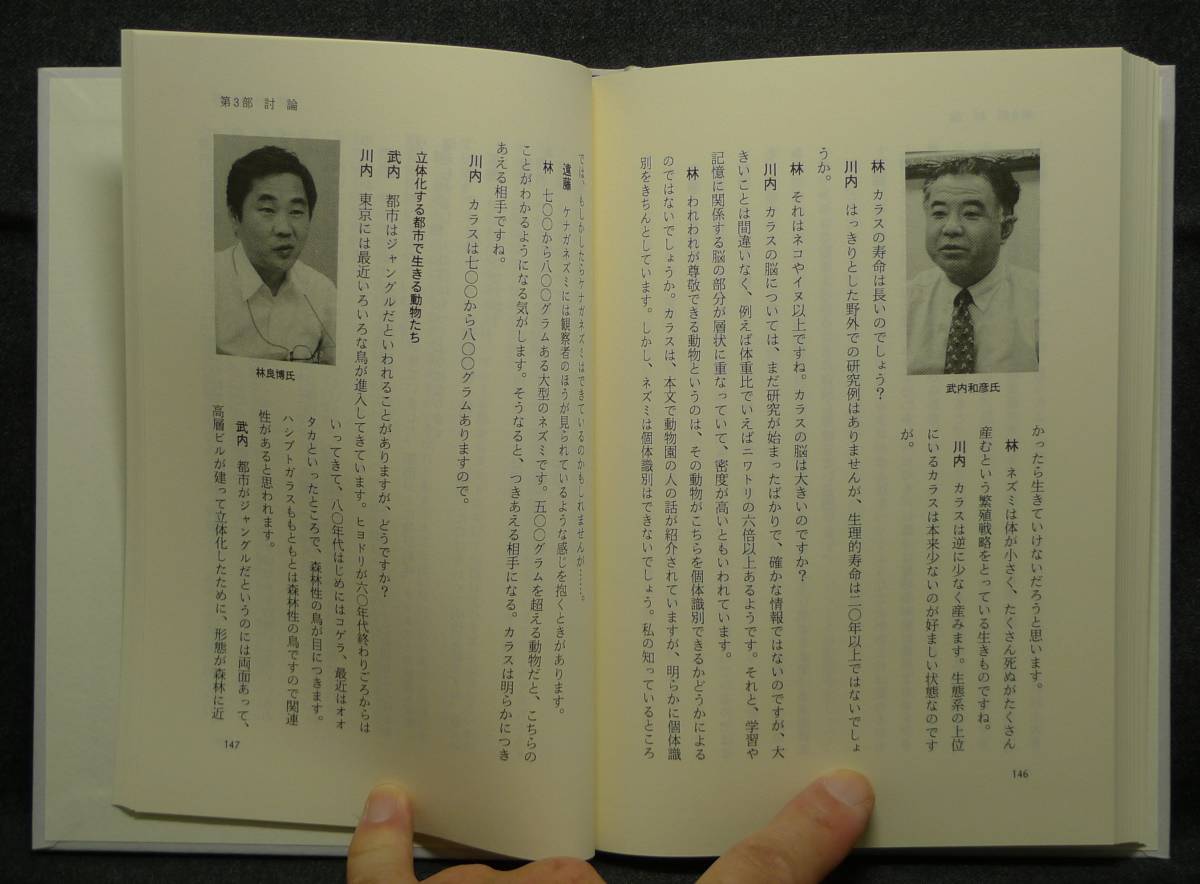 かったら生きていけないだろうと思います。
林　ネズミは体が小さく、たくさん死ぬがたくさん
産むという繁殖戦略をとっている生きものですね。
川内　カラスは逆に少なく産みます。生態系の上位
にいるカラスは本来少ないのが好ましい状態なのです
が。
武内和彦氏
林　カラスの寿命は長いのでしょう？
川内　はっきりとした野外での研究例はありませんが、生理的寿命は二〇年以上ではないでしょ
うか。
林　それはネコやイヌ以上ですね。カラスの脳は大きいのですか？
川内　カラスの脳については、まだ研究が始まったばかりで、確かな情報ではないのですが、大
きいことは間違いなく、例えば体重比でいえばニワトリの六倍以上あるようです。それと、学習や
記憶に関係する脳の部分が層状に重なっていて、密度が高いともいわれています。
林　われわれが尊敬できる動物というのは、その動物がこちらを個体識別できるかどうかによる
のではないでしょうか。カラスは、本文で動物園の人の話が紹介されていますが、明らかに個体識
別をきちんとしています。しかし、ネズミは個体識別はできないでしょう。私の知っているところ
146
第3部　討　論
では、もしかしたらケナガネズミはできているのかもしれませんが……。
遠藤　ケナガネズミには観察者のほうが見られているような感じを抱くときがあります。
林　七〇〇から八〇〇グラムある大型のネズミです。五〇〇グラムを超える動物だと、こちらの
ことがわかるようになる気がします。そうなると、つきあえる相手になる。カラスは明らかにつき
あえる相手ですね。
川内　カラスは七〇〇から八〇〇グラムありますので。
立体化する都市で生きる動物たち
武内　都市はジャングルだといわれることがありますが、どうですか？
川内　東京には最近いろいろな鳥が進入してきています。ヒヨドリが六〇年代終わりごろからは
いってきて、八〇年代はじめにはコゲラ、最近はオオ
タカといったところで、森林性の鳥が目につきます。
ハシブトガラスももともとは森林性の鳥ですので関連
性があると思われます。
武内　都市がジャングルだというのには両面あって、
高層ビルが建って立体化したために、形態が森林に近
林良博氏
147